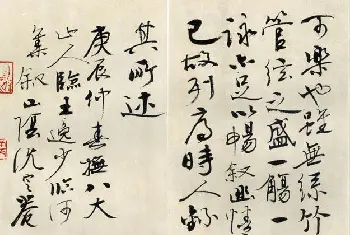 可樂也雖無絲竹
管弦之盛一觴一
詠亦足以暢叙幽情
已故列序時人錄
其所述
庚辰仲春撫八大
山人臨王逸少臨河
集叙山陰沈定菴